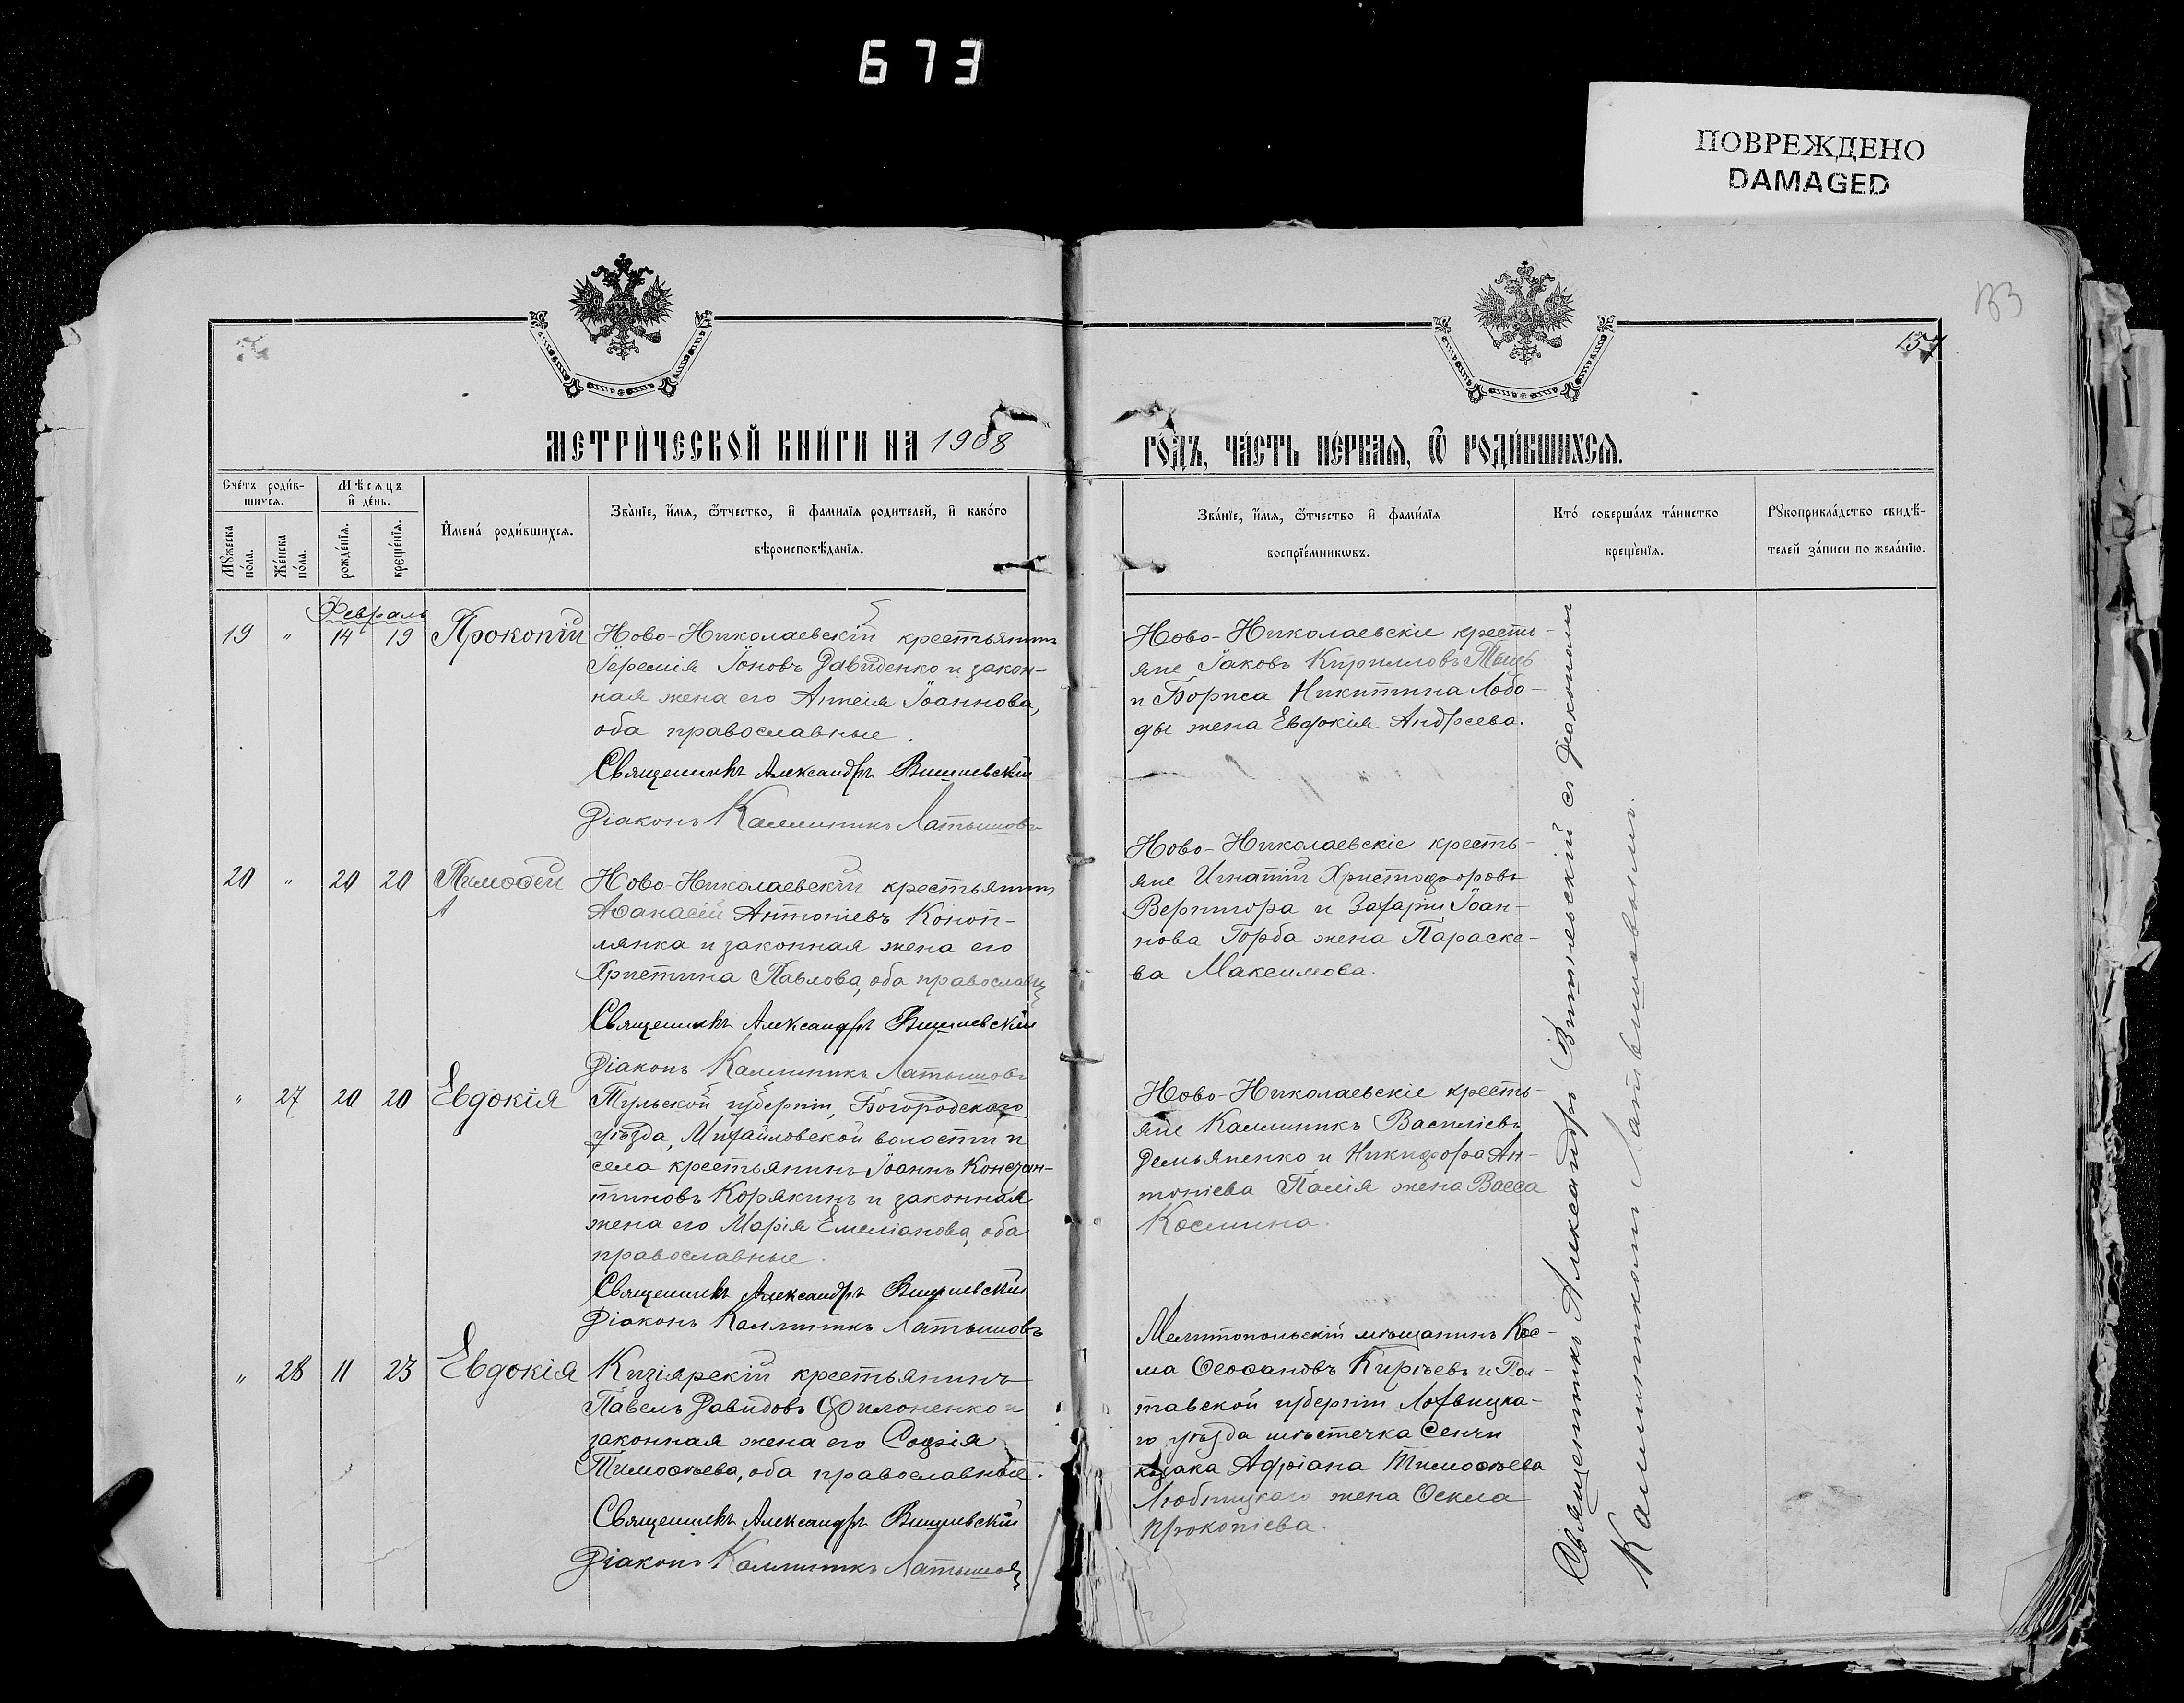 673
ПОВРЕЖДЕНО
DAMAGED
133
157
МЕТРИ́ЧЕСКОЙ КНИ́ГИ НА 1908
ГО́ДЪ, ЧА́СТЬ ПЕ́РВАЯ, Ѿ РОДИ́ВШИХСЯ.
Сче́тъ роди́в-
шихся.
Мѣсяцъ
и де́нь.
Мꙋжеска по́ла.
Же́нска по́ла.
рожде́нїѧ.
креще́нїѧ.
И́мена́ роди́вшихсѧ.
Зва́нїе, и́мѧ, ѻ҆́тчество, и҆ фами́лїѧ роди́телей, и҆ како́го
вѣроисповѣ́данїѧ.
Зва́нїе, и́мѧ, ѻ҆́тчество и҆ фами́лїѧ
воспрїе́мникѡвъ.
Кто́ соверша́лъ та́инство
креще́нїѧ.
Рꙋкоприкла́дство свидѣ́-
телей за́писи по жела́нїю.
Февраль
19 " 14 19 Прокопій
Ново-Николаевскій крестьянинъ
Іеремія Іоновъ Давиденко и закон-
ная жена его Анисія Іоаннова,
оба православные.
Священникъ Александръ Вишневскій
Діаконъ Каллиникъ Латышовъ
Ново-Николаевскіе кресть-
яне Іаковъ Кирилловъ
и Бориса Никитина Лобо-
ды жена Евдокія Андреева.
20 " 20 20 Тимоѳей
Ново-Николаевскій крестьянинъ
Аѳанасій Антоніевъ Коноп-
лянка и законная жена его
Христина Павлова, оба православн
Священникъ Александръ Вишневскій
Діаконъ Каллиникъ Латышовъ
Ново-Николаевскіе кресть-
яне Игнатій Христофоровъ
Вернигора и Захаріи Іоан-
нова Горба жена Параске-
ва Максимова.
" 27 20 20 Евдокія
Тульской губерніи, Богородскаго
уѣзда, Михайловской волости и
села крестьянинъ Іоаннъ Констан-
тиновъ Корякинъ и законная
жена его Марія Емеліанова, оба
православные.
Священникъ Александръ Вишневскій
Діаконъ Каллиникъ Латышовъ
Ново-Николаевскіе кресть-
яне Каллиникъ Василіевъ
Демьяненко и Никифора Ан-
тоніева Палія жена Васса
Космина.
" 28 11 23 Евдокія
Кизіярскій крестьянинъ
Павелъ Давидовъ Филоненко и
законная жена его Софія
Тимоѳѣева, оба православные.
Священникъ Александръ Вишневскій
Діаконъ Каллиникъ Латышовъ
Мелитопольскій мѣщанинъ Кос-
ма Ѳеофановъ Кирѣевъ и Пол-
тавской губерніи Лохвицка-
го уѣзда мѣстечка Сенчи
козака Адріана Тимоѳѣева
Любицкаго жена Ѳекла
Прокопіева.
Священникъ Александръ Вишневскій съ діакономъ
Каллиникомъ Латышовымъ.